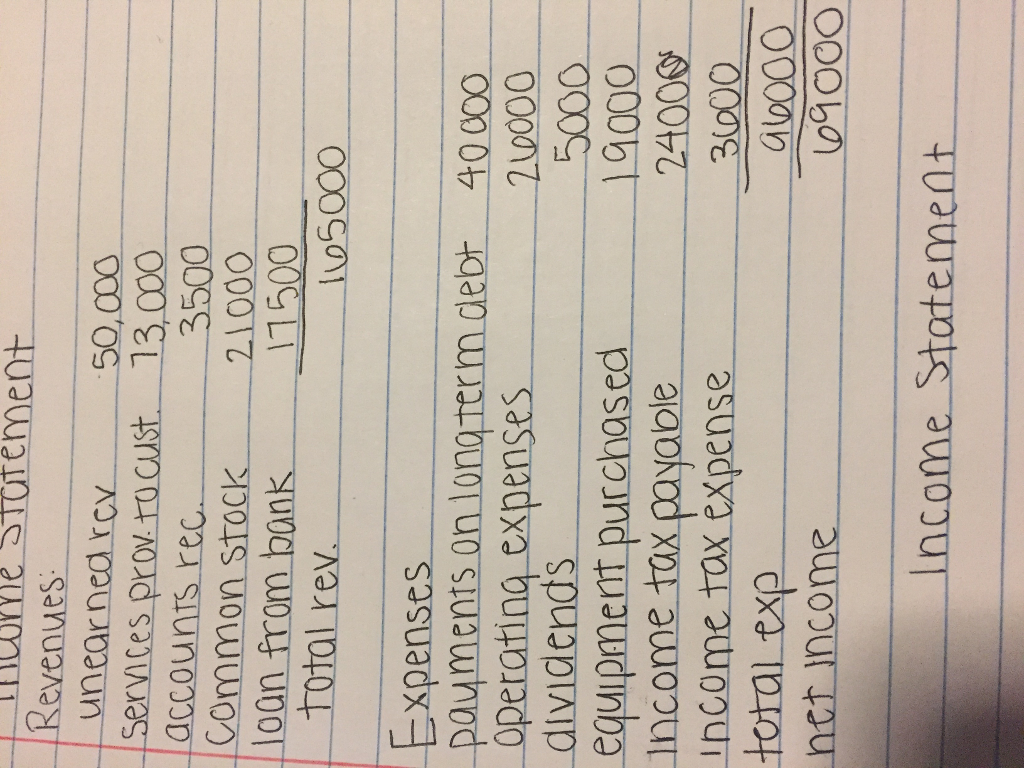 Income Statement
Revenues:
unearned rev 50,000
services prov. to cust. 73,000
accounts rec. 3500
common stock 21000
loan from bank 17500
total rev. 165000
Expenses
payments on long term debt 40000
operating expenses 26000
dividends 5000
equipment purchased 19000
Income tax payable 2400
Income tax expense 3600
total exp 96000
net income 69000
Income Statement